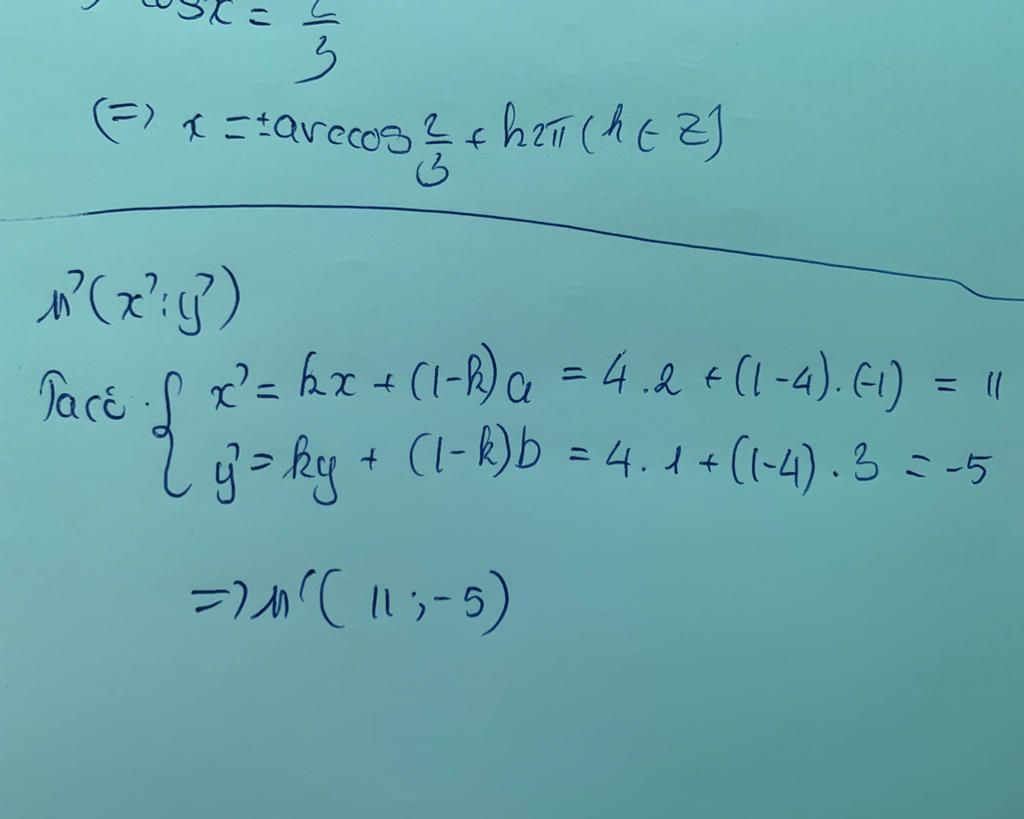 cosx = 2/3
(=) x = ±arccos 2/3 + k2π (k ∈ Z)
M'(x';y')
Ta có { x' = kx + (1-k)a = 4.2 + (1-4).(-1) = 11
y' = ky + (1-k)b = 4.1 + (1-4).3 = -5
=) M'(11;-5)